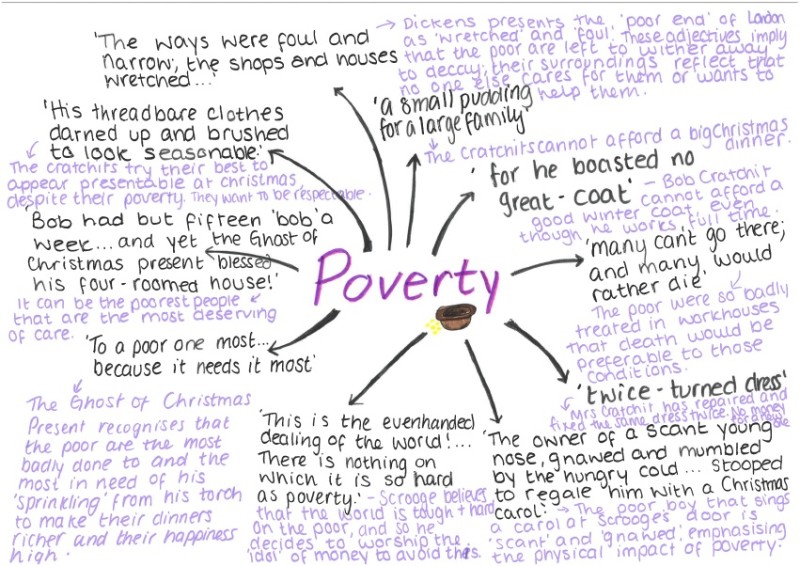 Poverty
'The ways were foul and
narrow; the shops and houses
wretched...'
→ Dickens presents the 'poor end' of London
as 'wretched' and 'foul'. These adjectives imply
that the poor are left to wither away
to decay; their surroundings reflect that
no one else cares for them or wants to
help them.
'a small pudding
for a large family'
The Cratchits cannot afford a big Christmas
dinner.
'for he boasted no
great-coat' - Bob Cratchit
cannot afford a
good winter coat, even
though he works full time.
'many can't go there;
and many would
rather die.'
The poor were so badly
treated in workhouses
that death would be
preferable to those
conditions.
'twice-turned dress'
Mrs Cratchit has repaired and
fixed the same dress twice. No money
'The owner of a scant young
nose, gnawed and mumbled
by the hungry cold... stooped
to regale him with a Christmas
carol.' → The poor boy that sings
a carol at Scrooge's door is
'scant' and 'gnawed', emphasising
the physical impact of poverty.
'This is the evenhanded
dealing of the world!...
There is nothing on
which it is so hard
as poverty.' - Scrooge believes
that the world is tough + hard
on the poor, and so he
decides to worship the
'idol' of money to avoid this.
'To a poor one most...
because it needs it most'
The Ghost of Christmas
Present recognises that
the poor are the most
badly done to and the
most in need of his
'sprinkling' from his torch
to make their dinners
richer and their happiness
high.
'Bob had but fifteen 'bob' a
week... and yet the Ghost of
Christmas present blessed
his four-roomed house!'
It can be the poorest people
that are the most deserving
of care.
'His threadbare clothes
darned up and brushed
to look seasonable.'
The cratchits try their best to
appear presentable at christmas
despite their poverty. They want to be respectable.